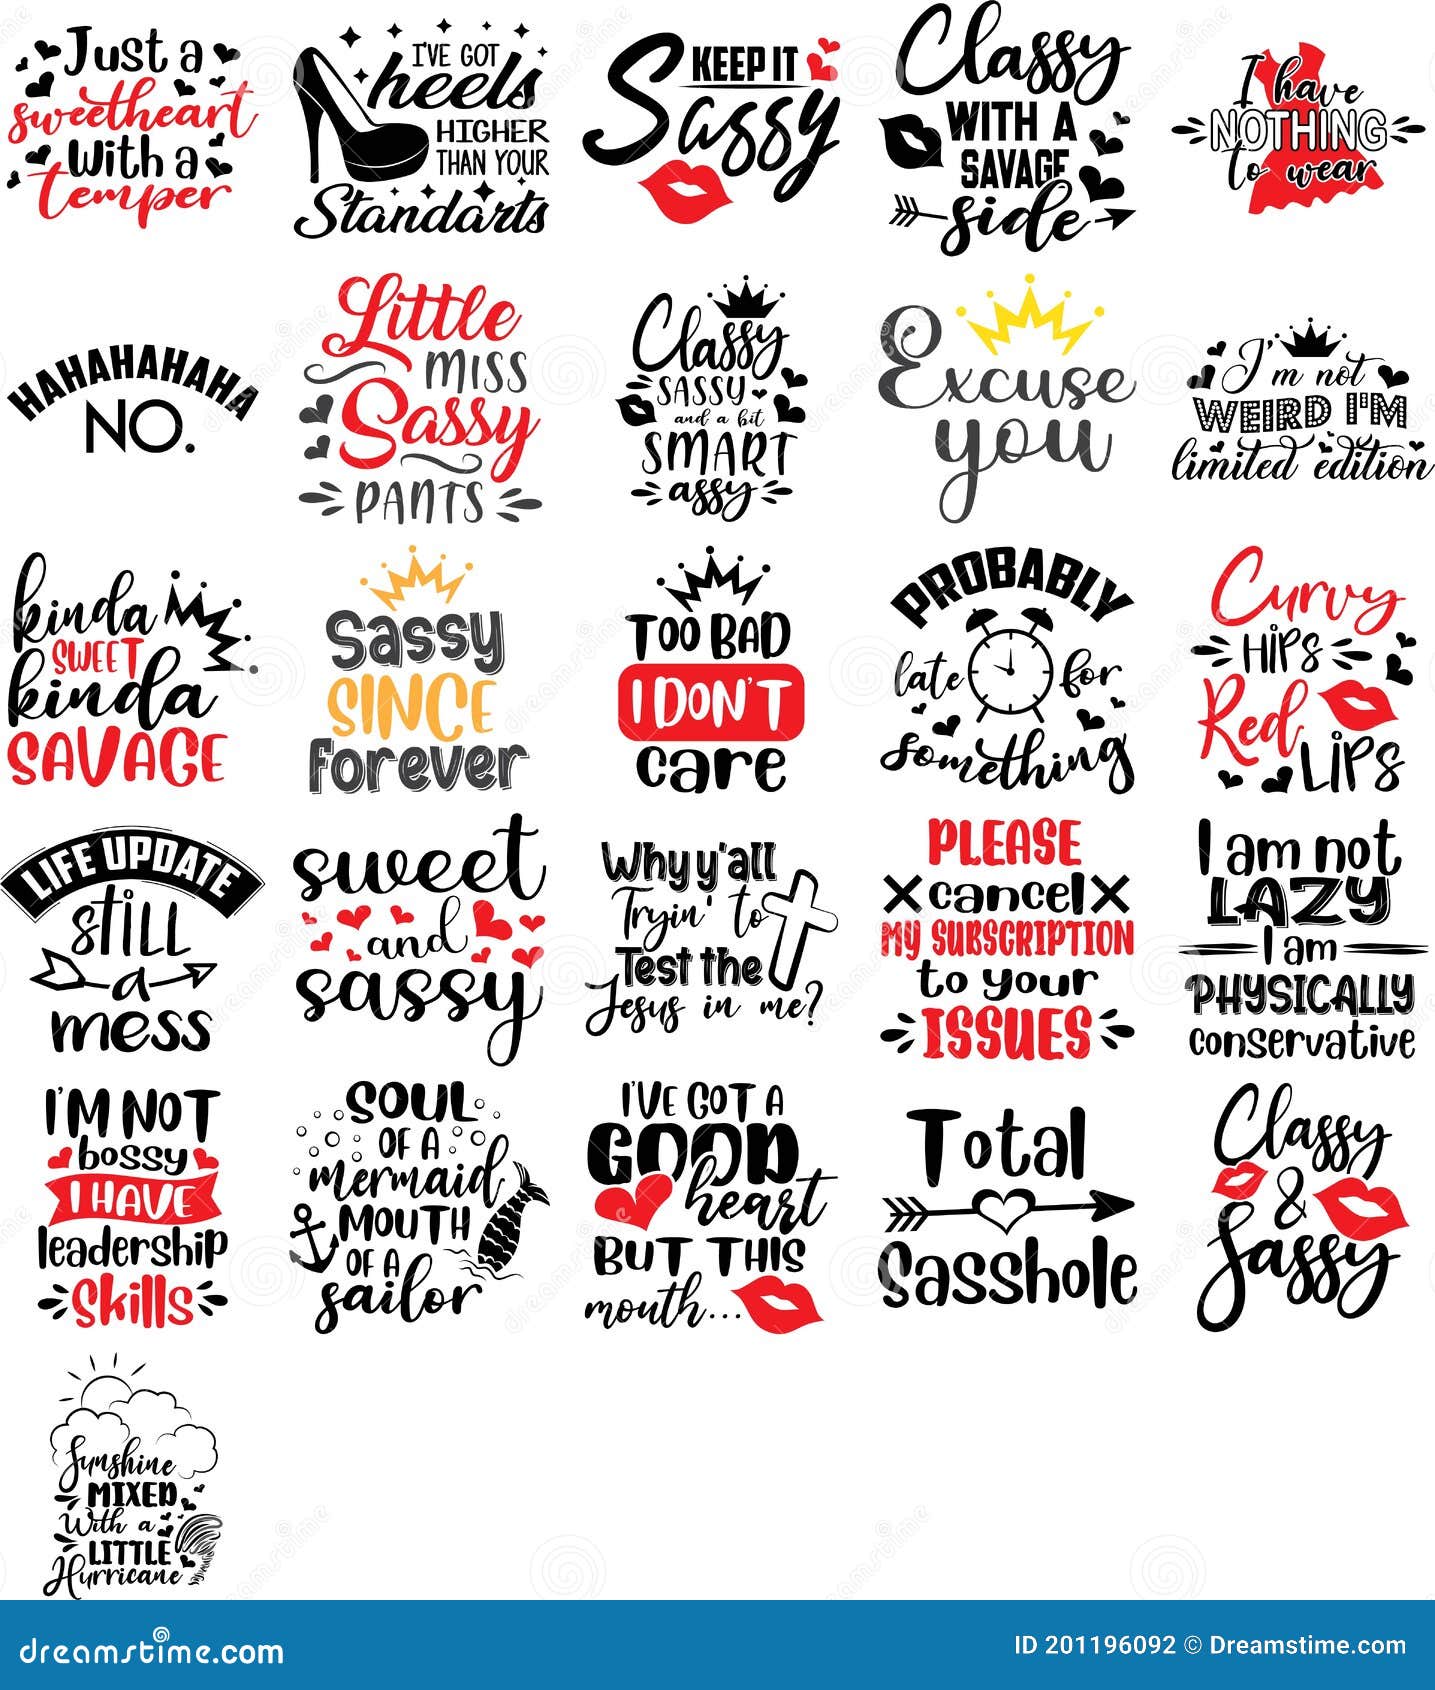 Just a
sweetheart
with a
temper
I'VE GOT
heels
HIGHER
THAN YOUR
Standarts
KEEP IT
Sassy
Classy
WITH A
SAVAGE
side
I have
NOTHING
to wear
HAHAHAHAHA
NO.
Little
MISS
Sassy
PANTS
Classy
SASSY
and a bit
SMART
assy
Excuse
you
I'm not
WEIRD I'M
limited edition
kinda
SWEET
kinda
SAVAGE
Sassy
SINCE
Forever
TOO BAD
I DON'T
care
PROBABLY
late for
something
Curvy
HIPS
Red
LIPS
LIFE UPDATE
still
a
mess
sweet
and
sassy
Why y'all
Tryin' to
Test the
Jesus in me?
PLEASE
cancel
MY SUBSCRIPTION
to your
ISSUES
I am not
LAZY
I am
PHYSICALLY
conservative
I'M NOT
bossy
I HAVE
leadership
Skills
SOUL
OF A
mermaid
MOUTH
OF A
sailor
I'VE GOT A
GOOD
heart
BUT THIS
mouth...
Total
Sasshole
Classy
&
Sassy
Sunshine
MIXED
With a
LITTLE
Hurricane
dreamstime.com
ID 201196092 © Dreamstime.com